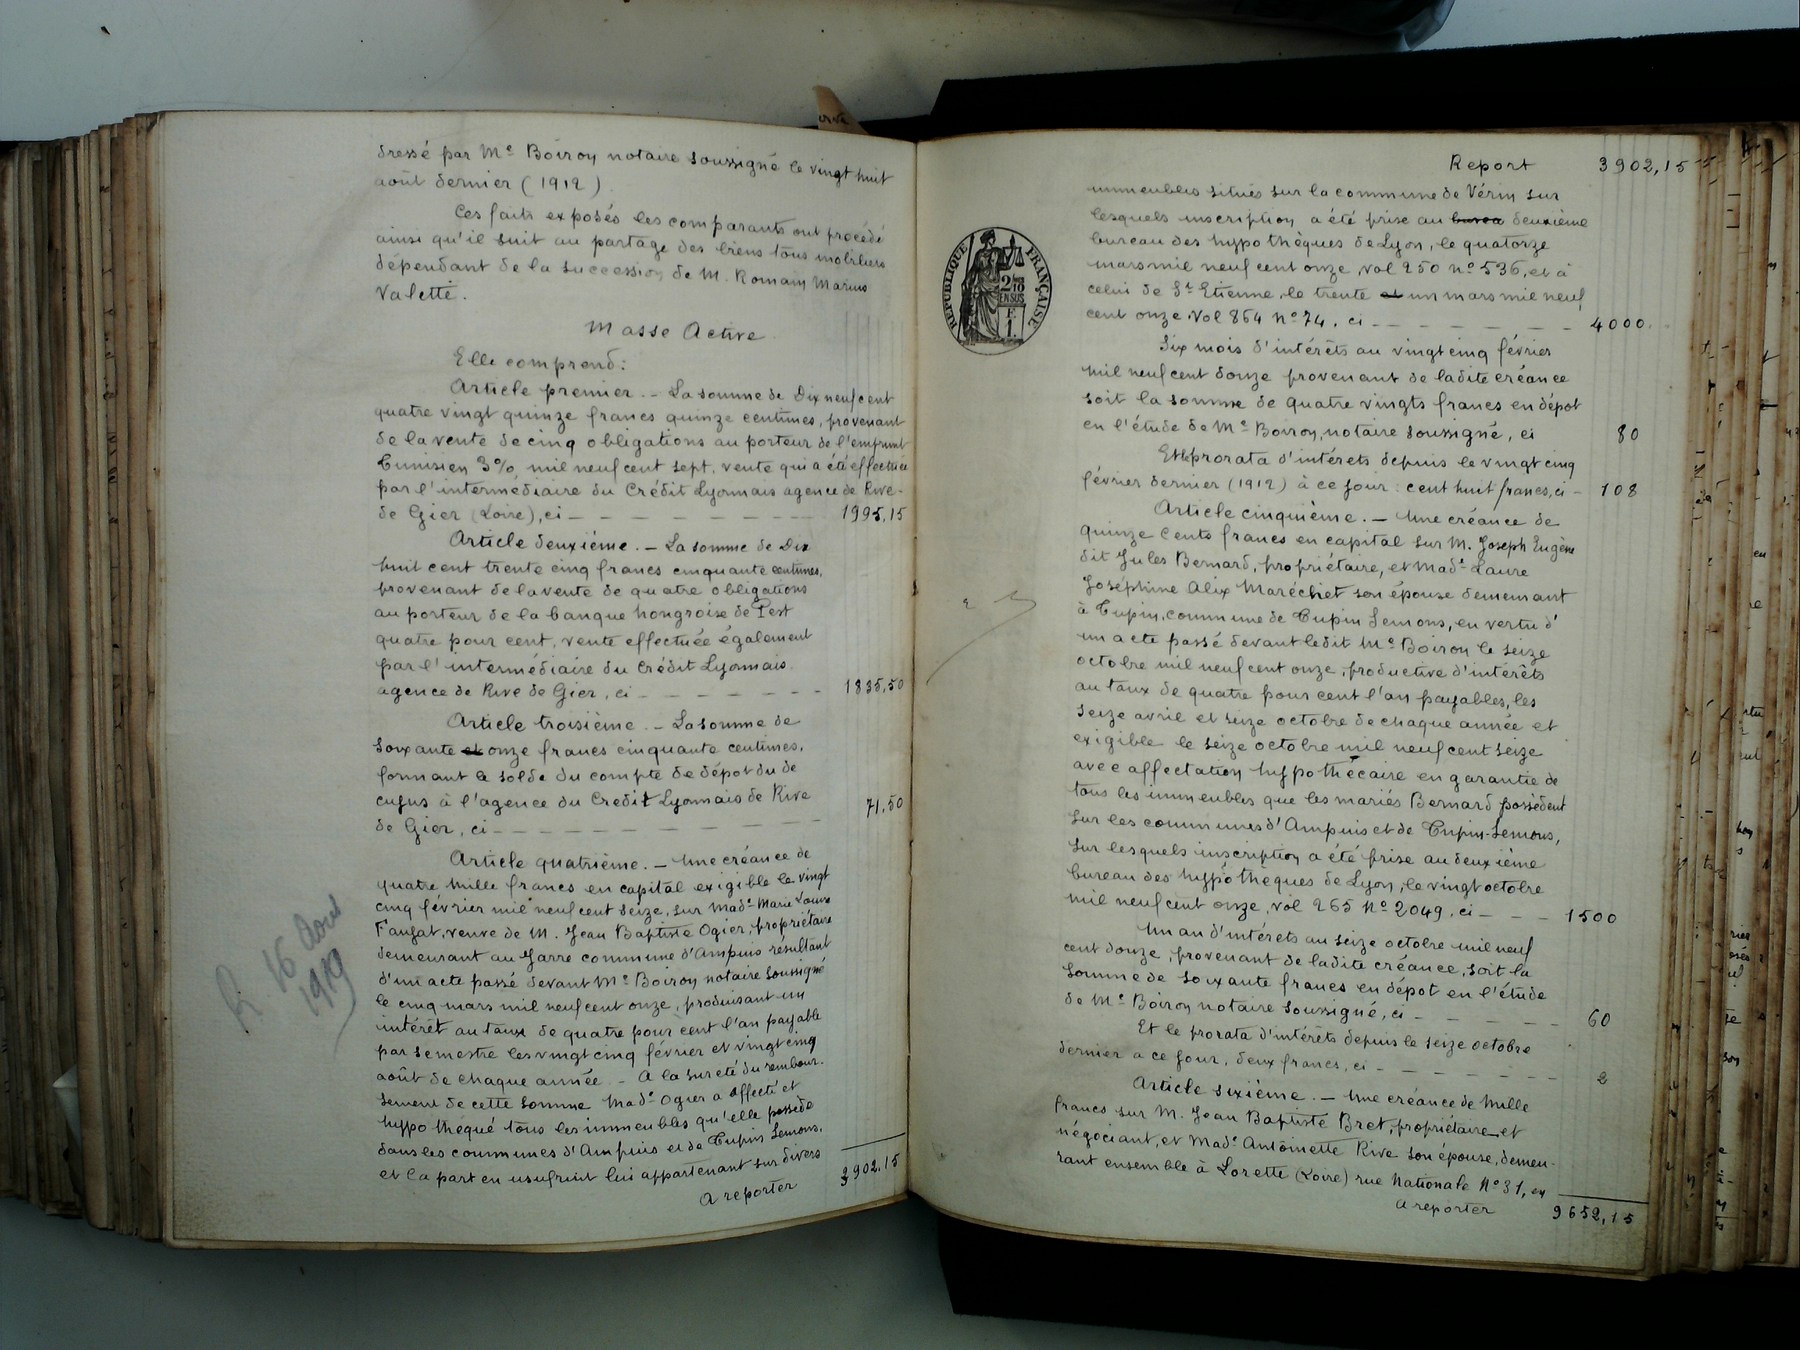 dressé par Me Boiron notaire soussigné le vingt huit
août dernier (1912)
Ces faits exposés les comparants ont procédé
ainsi qu'il suit au partage des biens tous mobiliers
dépendant de la succession de M. Romain Marius
Valette.
Masse Active
Elle comprend:
Article premier. - La somme de Dix neuf cent
quatre vingt quinze francs quinze centimes, provenant
de la vente de cinq obligations au porteur de l'emprunt
Tunisien 3% mil neuf cent sept, vente qui a été effectuée
par l'intermédiaire du Crédit Lyonnais agence de Rive-
de Gier (Loire), ci - - - - - - - 1995,15
Article deuxième. - La somme de Dix
huit cent trente cinq francs cinquante centimes,
provenant de la vente de quatre obligations
au porteur de la banque hongroise de Pest
quatre pour cent, vente effectuée également
par l'intermédiaire du Crédit Lyonnais
agence de Rive de Gier, ci - - - - - - - 1835,50
Article troisième. - La somme de
soixante et onze francs cinquante centimes,
formant le solde du compte de dépôt du de
cujus à l'agence du Crédit Lyonnais de Rive
de Gier, ci - - - - - - - - - - 71,50
Article quatrième. - Une créance de
quatre mille francs en capital exigible le vingt
cinq février mil neuf cent seize, sur Made Marie Louise
Faugat, veuve de M. Jean Baptiste Ogier, propriétaire
demeurant au Garre commune d'Ampuis résultant
d'un acte passé devant Me Boiron notaire soussigné
le cinq mars mil neuf cent onze, produisant un
intérêt au taux de quatre pour cent l'an payable
par semestre les vingt cinq février et vingt cinq
août de chaque année - A la sureté du rembour-
sement de cette somme Made Ogier a affecté et
hypothéqué tous les immeubles qu'elle possède
dans les communes d'Ampuis et de Tupin Semons,
et la part en usufruit lui appartenant sur divers
A reporter 3902,15
R. 16 Aout
1919
Report 3902,15
immeubles situés sur la commune de Vérin sur
lesquels inscription a été prise au burea deuxième
bureau des hypothèques de Lyon, le quatorze
mars mil neuf cent onze, vol 250 no 536, et à
celui de St Etienne, le trente et un mars mil neuf
cent onze Vol 864 No 74, ci - - - - - - - 4000
Six mois d'intérêts au vingt cinq février
mil neuf cent douze provenant de ladite créance
soit la somme de quatre vingts francs en dépôt
en l'étude de Me Boiron, notaire soussigné, ci 80
Et le prorata d'intérets depuis le vingt cinq
février dernier (1912) à ce jour : cent huit francs, ci - 108
Article cinquième. - Une créance de
quinze cents francs en capital sur M. Joseph Eugène
dit Jules Bernard, propriétaire, et Made Laure
Joséphine Alix Maréchet son épouse demeurant
à Tupin, commune de Tupin Semons, en vertu d'
un acte passé devant ledit Me Boiron le seize
octobre mil neuf cent onze, productive d'intérêts
au taux de quatre pour cent l'an payables, les
seize avril et seize octobre de chaque année et
exigible le seize octobre mil neuf cent seize
avec affectation hypothécaire en garantie de
tous les immeubles que les mariés Bernard possèdent
sur les communes d'Ampuis et de Tupin-Semons,
sur lesquels inscription a été prise au deuxième
bureau des hypothèques de Lyon, le vingt octobre
mil neuf cent onze, vol 265 No 2049, ci - - - 1500
Un an d'intérets au seize octobre mil neuf
cent douze, provenant de ladite créance, soit la
somme de soixante francs en dépôt en l'étude
de Me Boiron notaire soussigné, ci - - - - - 60
Et le prorata d'intérêts depuis le seize octobre
dernier à ce jour, deux francs, ci - - - - - - - 2
Article sixième. - Une créance de Mille
francs sur M. Jean Baptiste Bret, propriétaire et
négociant, et Made Antoinette Rive son épouse, demeu-
rant ensemble à Lorette (Loire) rue Nationale No 31, ex
A reporter 9652,15
RÉPUBLIQUE FRANÇAISE
2/10
EN SUS
1F